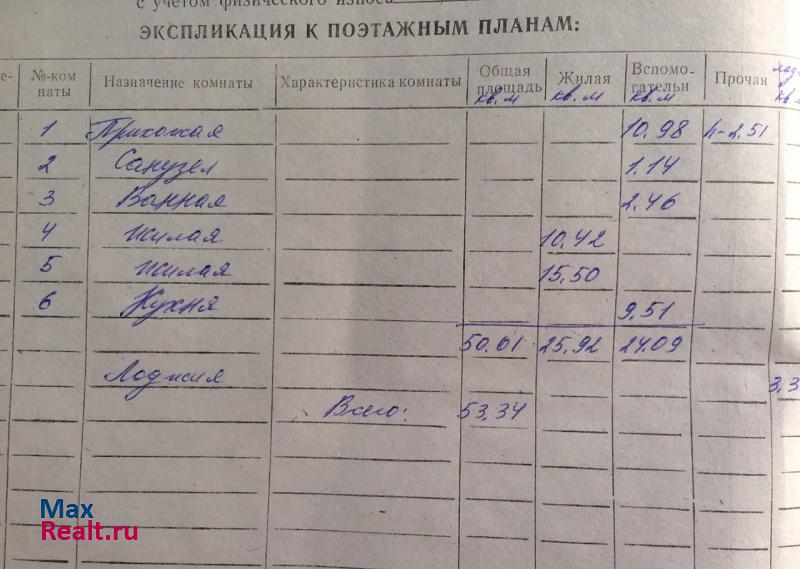 с учетом физического износа
ЭКСПЛИКАЦИЯ К ПОЭТАЖНЫМ ПЛАНАМ:
№-ком наты Назначение комнаты Характеристика комнаты Общая площадь кв. м Жилая кв. м Вспомо- гательн кв. м Прочая
1 Прихожая 10.98 h-2.51
2 Санузел 1.14
3 Ванная 2.46
4 жилая 10.42
5 жилая 15.50
6 Кухня 9.51
50.01 25.92 24.09
Лоджия 3,3
Всего: 53.34
Max
Realt.ru